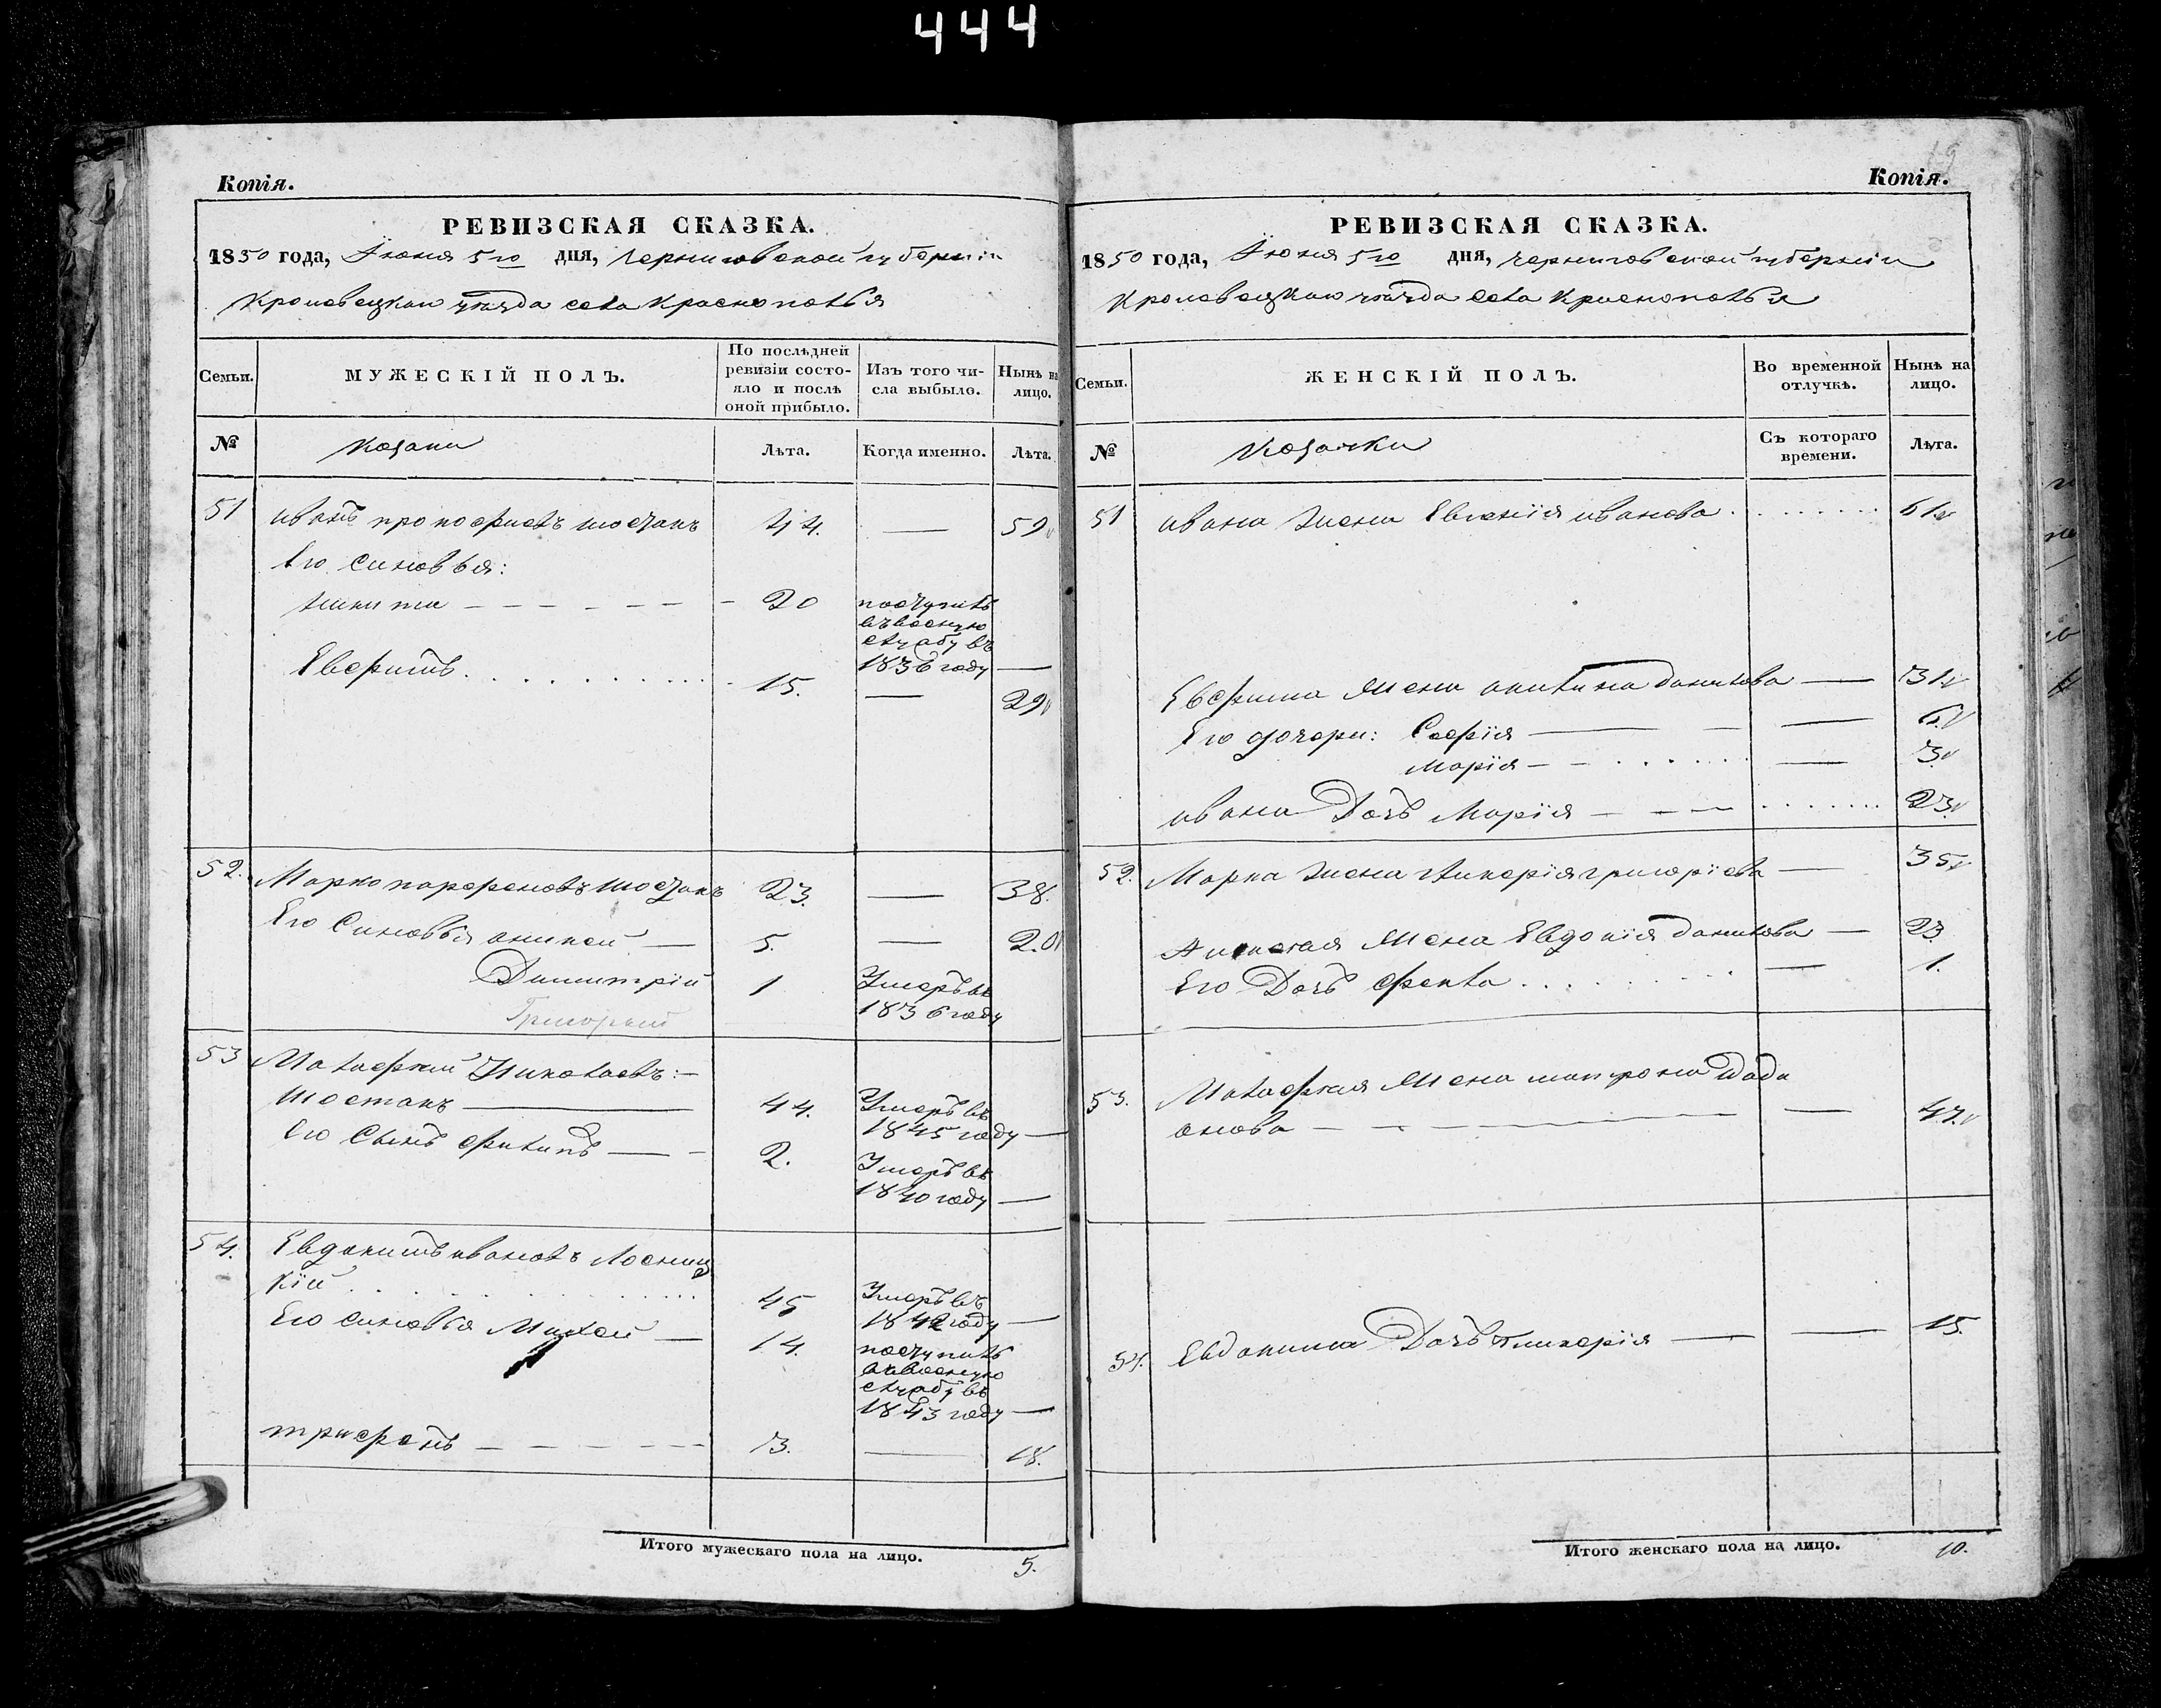 444
Копія.
РЕВИЗСКАЯ СКАЗКА.
1850 года, Іюня 5го дня, Черниговской губерніи
Кролевецкаго уѣзда села Краснополья
Семьи.
МУЖЕСКІЙ ПОЛЪ.
По послѣдней
ревизіи состо-
яло и послѣ
оной прибыло.
Изъ того чи-
сла выбыло.
Нынѣ на
лицо.
№
Козаки
Лѣта.
Когда именно.
Лѣта.
51 иванъ прокофіевъ шостакъ 44. — 59
Его синовья:
никита 20 поступилъ
въ военную
службу въ
1836 году —
Евфимъ 15. — 29
52. Марко парфеновъ шостакъ 23. — 38.
Его Синовья аникей — 5. — 20
Димитрій 1 Умеръ въ
1836 году
Григорий
53 Малафей Николаевъ:
шостакъ — 44. Умеръ въ
1845 году —
Его Сынъ филипъ — 2. Умеръ въ
1840 году —
54. Евдокимъ ивановъ Лосниц
кій 45 Умеръ въ
1842 году —
Его синовья Михей — 14. поступилъ
въ военную
службу въ
1843 году —
трифонъ 3. — 18.
Итого мужескаго пола на лицо. 5.
19
Копія.
РЕВИЗСКАЯ СКАЗКА.
1850 года, Іюня 5го дня, Черниговской губерніи
Кролевецкаго уѣзда села Краснополья
Семьи.
ЖЕНСКІЙ ПОЛЪ.
Во временной
отлучкѣ.
Нынѣ на
лицо.
№
Козачки
Съ котораго
времени.
Лѣта.
51 ивана жена Евгенія иванова 61
Евфима жена акилина данилова — 31
Его дочери: Софія — — 6
Марія — 3
ивана Дочъ Марія 23
52. Марка жена гликерія григоріева — 35
Аникея жена Евдокія данилова — 23
Его Дочъ фекла — 1.
53. Малафея жена матрона
онова — 47.
54. Евдокима Дочъ гликерія — — 15.
Итого женскаго пола на лицо. 10.